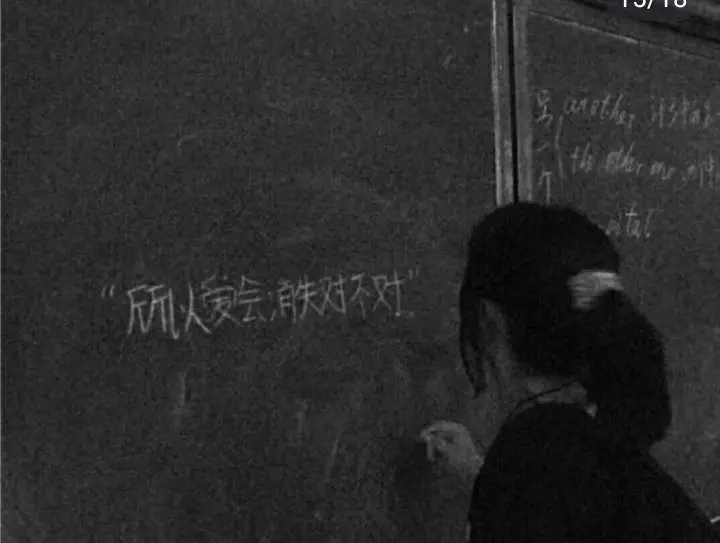 15/18
"所以爱会消失对不对"
另一个
another
the other one